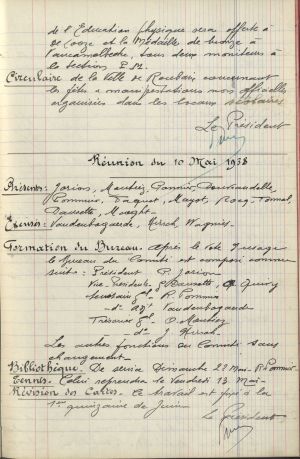 de l'Education Physique sera offerte à
de Cooze et la Médaille de bronze à
tous deux moniteurs à
la section E.P.
Circulaire de la Ville de Roubaix concernant
les fêtes & manifestations non officielles
organisées dans les locaux scolaires
Le Président
Réunion du 10 Mai 1938
Présents: Jorion,
Commun, Paquet, Mayot,
Excusés: Vandenbogaerde, Hirsch, Wagnies.
Formation du Bureau. Après le vote d'usage
le Bureau du Comité est composé comme
suit: Président P. Jorion
Vice-Présidents
Secrétaire gal P. Commun
- do - adjt Vandenbogaerde
Trésorier gal
- do - J. Hirsch
Les autres fonctions du Comité sans
changement.
Bibliothèque. De service Dimanche 22 Mai - P. Commun
Tennis. Celui reprendra le Vendredi 13 Mai -
Révision des Cartes. Ce travail est fixé à la
1re quinzaine de Juin
Le Président